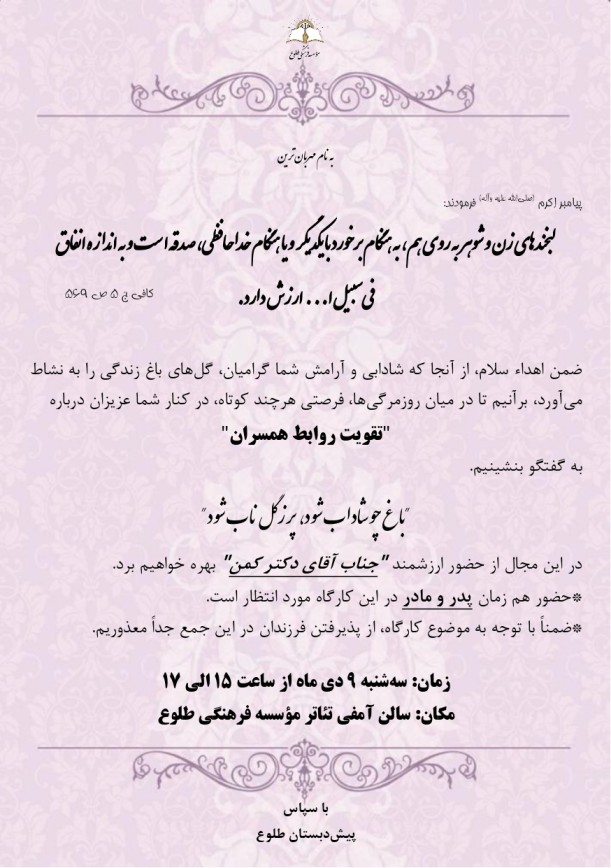 مؤسسه فرهنگی طلوع
به نام مهربان‌ترین
پیامبر اکرم (صلی‌الله علیه وآله) فرمودند:
لبخندهای زن و شوهر به روی هم، به هنگام برخورد با یکدیگر و یا هنگام خداحافظی، صدقه است و به اندازه انفاق
فی سبیل ا... ارزش دارد.
کافی ج ۵ ص ۵۶۹
ضمن اهداء سلام، از آنجا که شادابی و آرامش شما گرامیان، گل‌های باغ زندگی را به نشاط
می‌آورد، برآنیم تا در میان روزمرگی‌ها، فرصتی هرچند کوتاه، در کنار شما عزیزان درباره
"تقویت روابط همسران"
به گفتگو بنشینیم.
"باغ چو شاداب شود، پر ز گل ناب شود"
در این مجال از حضور ارزشمند "جناب آقای دکتر کمن" بهره خواهیم برد.
*حضور هم زمان پدر و مادر در این کارگاه مورد انتظار است.
*ضمناً با توجه به موضوع کارگاه، از پذیرفتن فرزندان در این جمع جداً معذوریم.
زمان: سه‌شنبه ۹ دی ماه از ساعت ۱۵ الی ۱۷
مکان: سالن آمفی تئاتر مؤسسه فرهنگی طلوع
با سپاس
پیش‌دبستان طلوع